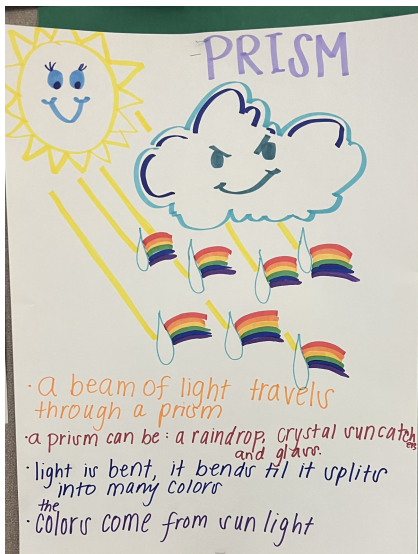 PRISM
· a beam of light travels
through a prism
· a prism can be: a raindrop, crystal suncatchers
and glass.
· light is bent, it bends til it splits
into many colors
· the colors come from sun light